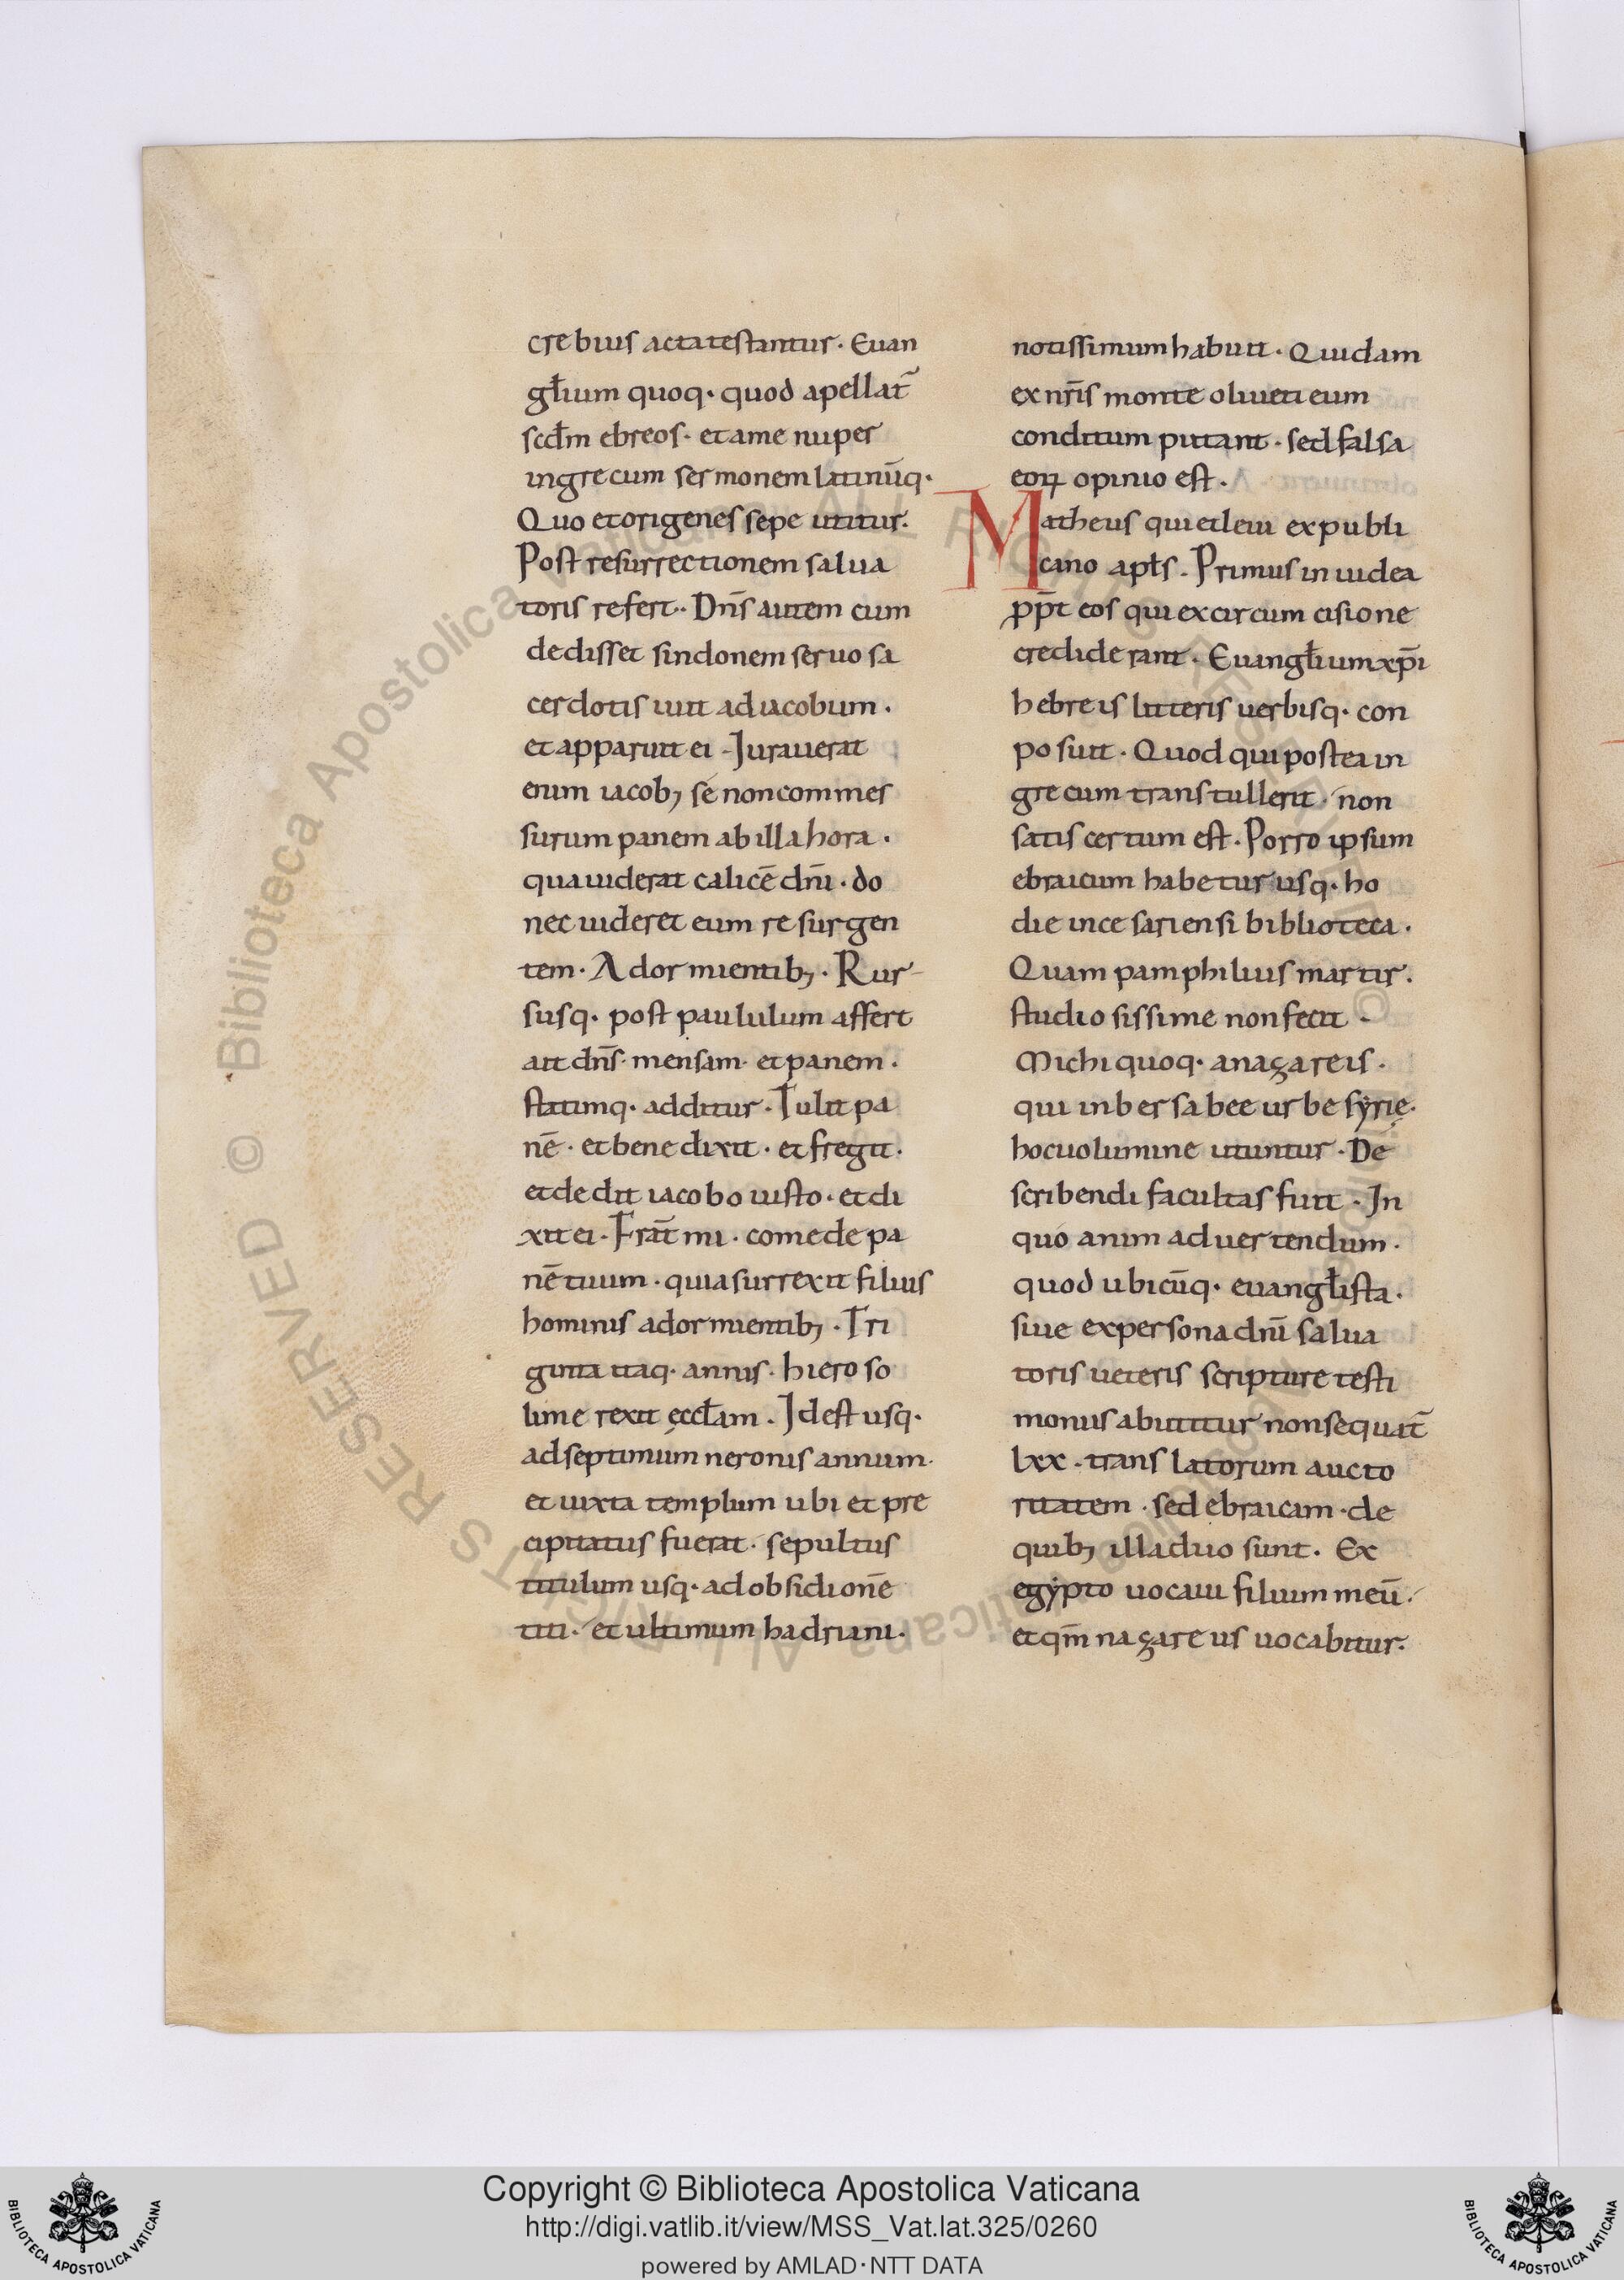 crebius acta testantur. Euan
głium quoq. quod apellat̄
scdm̄ ebreos. et a me nuper
in grecum sermonem latinūq.
Quo et origenes sepe utitur.
Post resurrectionem salua
toris refert. Dn̄s autem cum
dedisset sindonem seruo sa
cerdotis iuit ad iacobum.
et apparuit ei. Jurauerat
enim iacobꝫ se non commes
surum panem ab illa hora.
qua uiderat calicē dn̄i. do
nec uideret eum resurgen
tem. A dormientibꝫ. Rur
susq. post paululum affert
ait dn̄s. mensam. et panem.
statimq. additur. Tulit pa
nē. et benedixit. et fregit.
et dedit iacobo iusto. et di
xit ei. Frat̄ mi. comede pa
nē tuum. quia surrexit filius
hominis a dormientibꝫ. Tri
ginta itaq. annis. hieroso
lime rexit ęccłam. Id est usq.
ad septimum neronis annum.
et iuxta templum ubi et pre
cipitatus fuerat. sepultus
titulum usq. ad obsidionē
titi. et ultimum hadriani.
notissimum habuit. Quidam
ex nr̄is monte oliueti eum
conditum putant. sed falsa
eoꝝ opinio est.
Matheus qui et leui ex publi
cano apłs. Primus in iudea
pp̄t eos qui ex circumcisione
crediderant. Euangłium xp̄i
hebreis litteris uerbisq. con
posuit. Quod qui postea in
grecum transtullerit. non
satis certum est. Porro ipsum
ebraicum habetur usq. ho
die in cesariensi biblioteca.
Quam pamphilius martir.
studiosissime non fecit.
Michi quoq. a naçareis.
qui in bersabee urbe syrię.
hoc uolumine utuntur. De
scribendi facultas fuit. In
quo anim aduertendum.
quod ubicūq. euangłista.
siue ex persona dn̄i salua
toris ueteris scripture testi
moniis abutitur non sequat̄
lxx. translatorum aucto
ritatem. sed ebraicam. de
quibꝫ illa duo sunt. Ex
egypto uocaui filium meū.
et qm̄ naçareus uocabitur.
Biblioteca Apostolica Vaticana ALL RIGHTS RESERVED ©
Copyright © Biblioteca Apostolica Vaticana
http://digi.vatlib.it/view/MSS_Vat.lat.325/0260
powered by AMLAD·NTT DATA
BIBLIOTECA APOSTOLICA VATICANA
BIBLIOTECA APOSTOLICA VATICANA